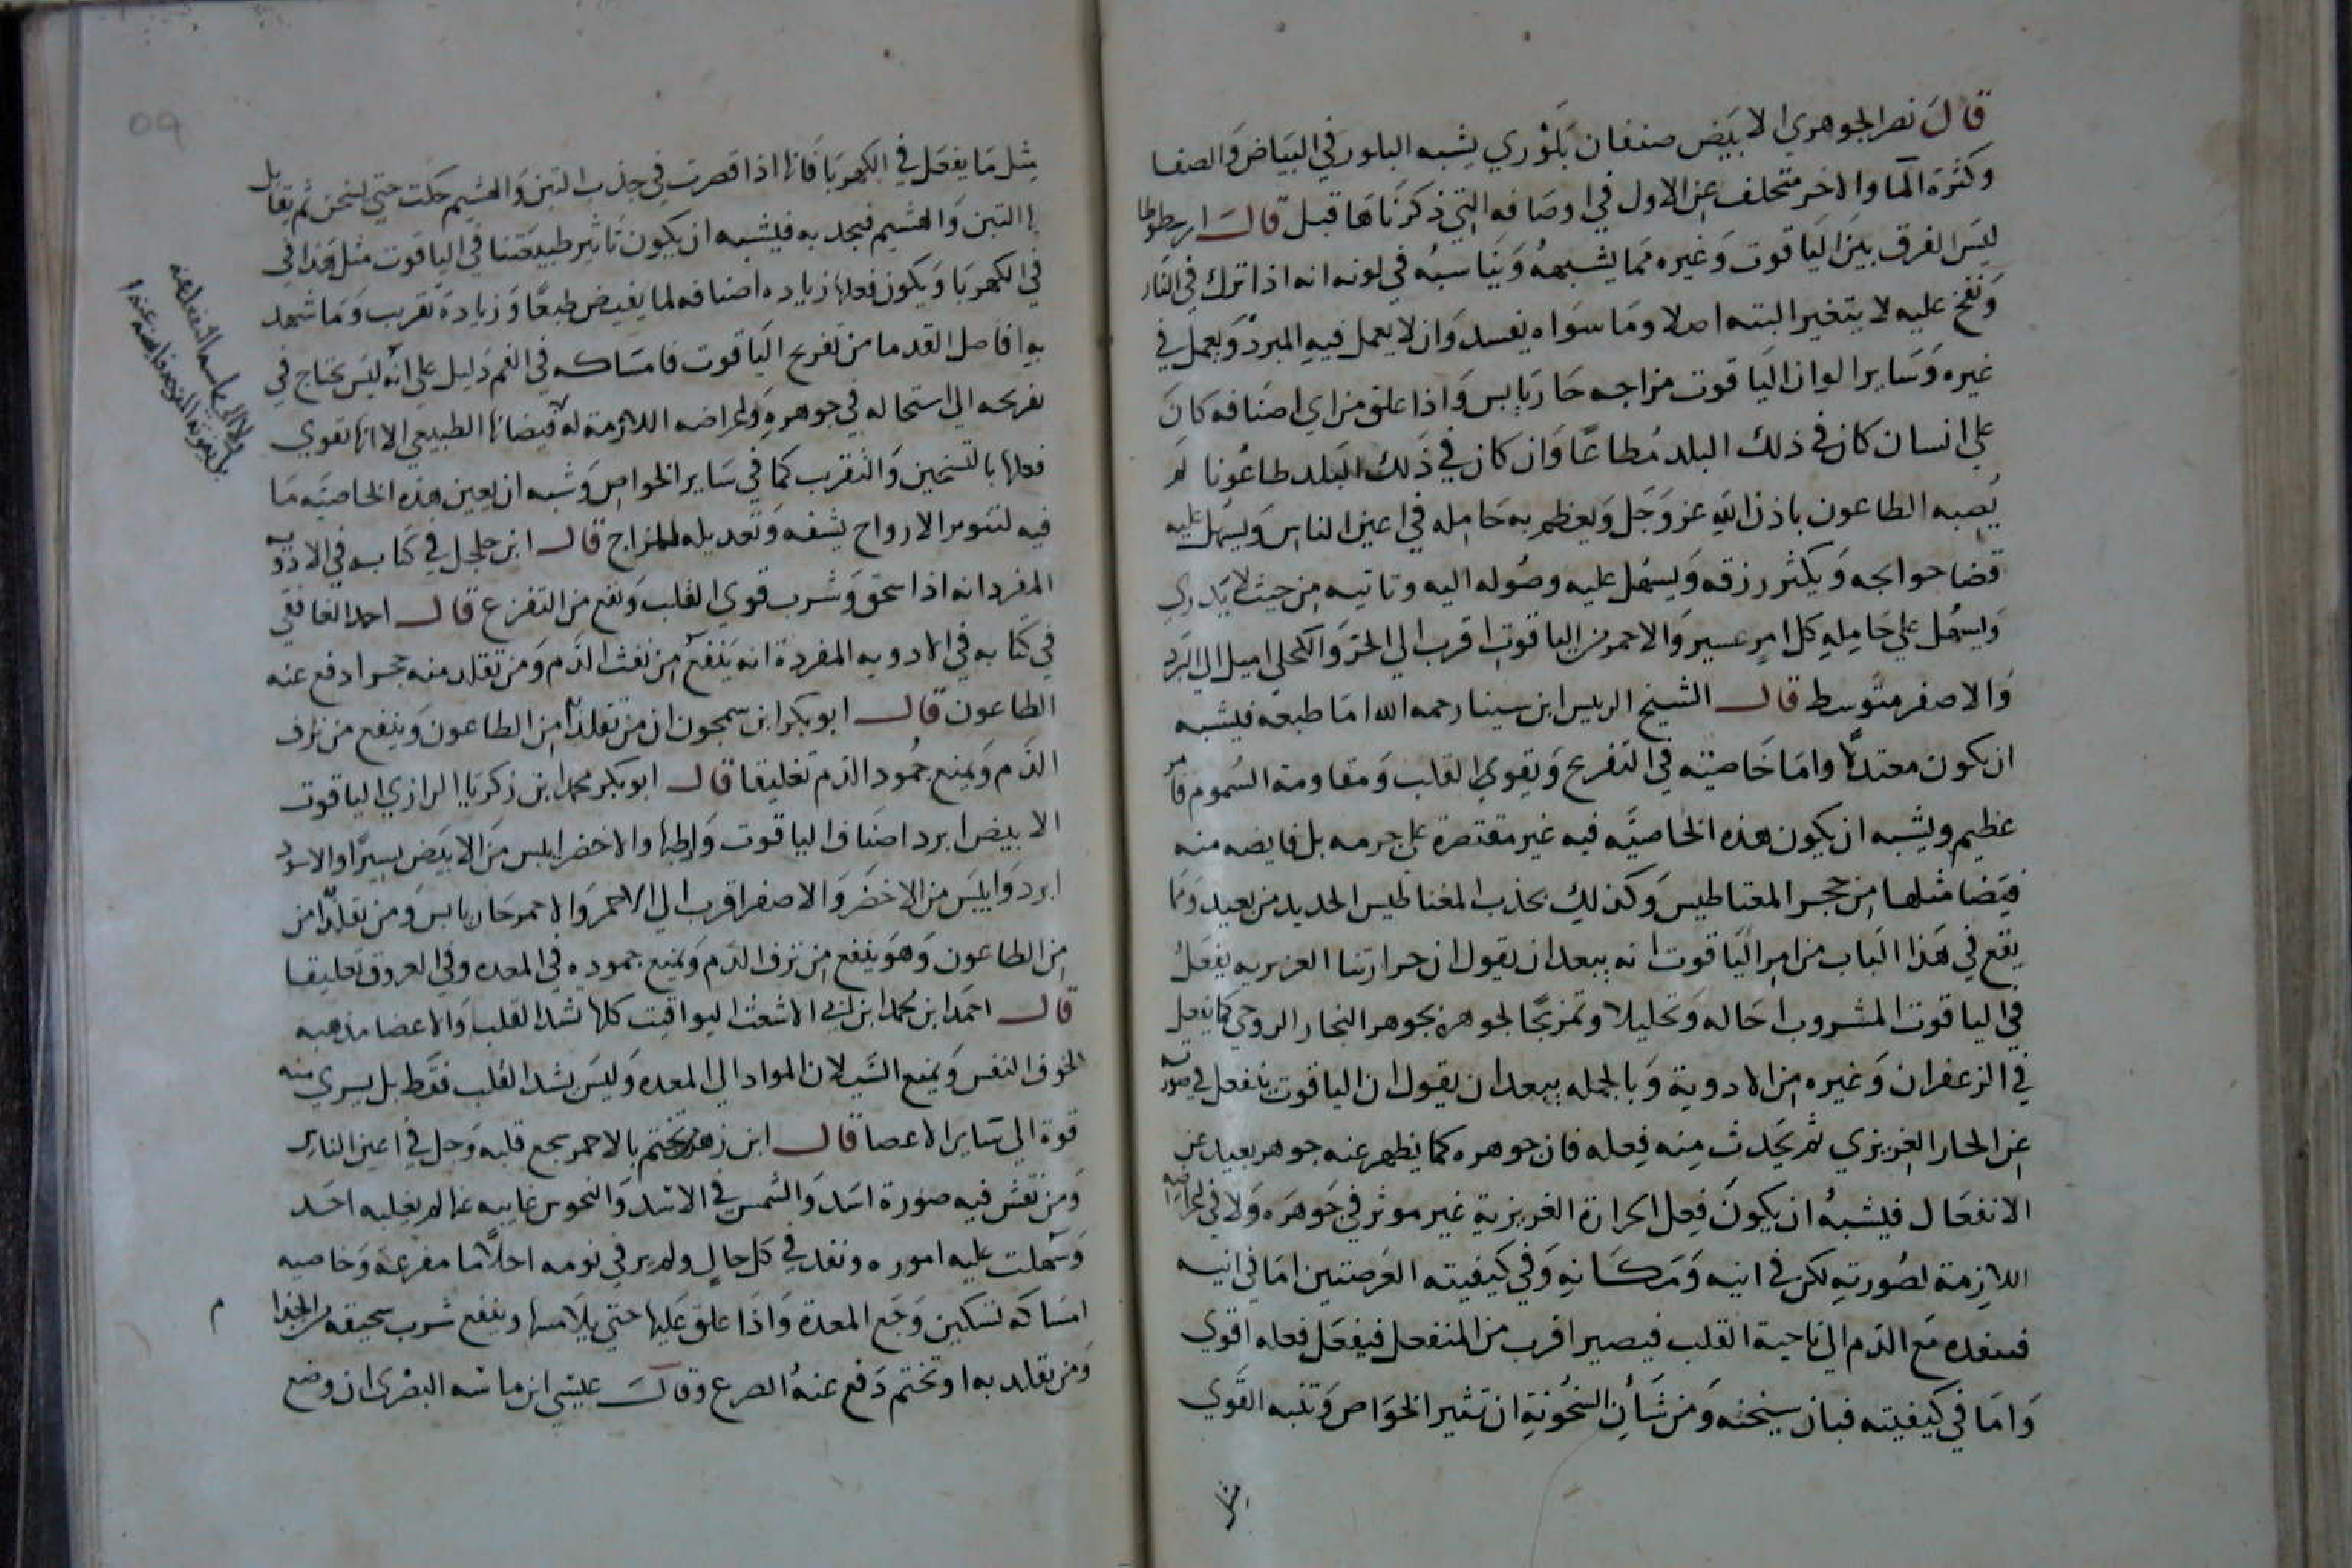 قال نصر الجوهري الابيض صنفان بلوري يشبه البلور في البياض والصفا
وكثرة الما والاخر متخلف عن الاول في اوصافه التي ذكرناها قبل قال ارسطوطا
ليس الفرق بين الياقوت وغيره مما يشبهه ويناسبه في لونه انه اذا ترك في النار
ونفخ عليه لا يتغير البته اصلا وما سواه يفسد وان لا يعمل فيه المبرد ويعمل في
غيره وساير الوان الياقوت مزاجه حار يابس واذا علق من اي اصنافه كان
على انسان كان في ذلك البلد مطاعا وان كان في ذلك البلد طاعونا لم
يصبه الطاعون باذن الله عز وجل ويعظم به حامله في اعين الناس ويسهل عليه
قضا حوايجه ويكثر رزقه ويسهل عليه وصوله اليه وتاتيه من حيث لا يدري
ويسهل على حامله كل امر عسير والاحمر من الياقوت اقرب الي الحر والكحلي اميل الي البرد
والاصفر متوسط قال الشيخ الريس ابن سينا رحمه الله اما طبعه فيشبه
ان يكون معتدلا واما خاصيته في التفريح وتقوي القلب ومقاومة السموم فامر
عظيم ويشبه ان يكون هذه الخاصيه فيه غير مقتصرة على جرمه بل فايضه منه
فيضا مثلها من حجر المغناطيس وكذلك يجذب المغناطيس الحديد من بعيد ومما
يقع في هذا الباب من امر الياقوت انه يبعد ان يقول ان حرارتنا الغريزيه يفعل
في الياقوت المشروب احاله وتحليلا وتمزيجا لجوهره بجوهر البخار الروحي كما يفعل
في الزعفران وغيره من الادوية وبالجمله يبعد ان يقول ان الياقوت ينفعل في صورته
عن الحار الغريزي ثم يحدث منه فعله فان جوهره كما يظهر عنه جوهر بعيد عن
الانفعال فيشبه ان يكون فعل الحرارة الغريزية غير موثر في جوهره ولا في اعراضه
اللازمة لصورته لكن في اينيه ومكانه وفي كيفيته العرضتين اما في اينيه
فينفده مع الدم الي ناحية القلب فيصير اقرب من المنفعل فيفعل فعله اقوي
واما في كيفيته فبان يسخنه ومن شأن السخونة ان تثير الخواص وتنبه القوي
مثل ما يفعل في الكهربا فانها اذا قصرت في جذب التبن والهشيم حكت حتي تسخن ثم يقابل
بها التبن والهشيم فيجد به فيشبه ان يكون تاثير طبيعتنا في الياقوت مثل هذا في
في الكهربا ويكون فعلها زياده اضافه لما يفيض طبعا وزيادة تقريب وما شهد
به افاضل القدما من تفريح الياقوت فامساكه في الفم دليل على انه ليس يحتاج في
تفريحه الي استحاله في جوهره ولا اعراضه اللازمة له لا فيضانها الطبيعي الا انها تقوي
فعلها بالتسخين والتقريب كما في ساير الخواص وشبه ان يعين هذه الخاصيه ما
فيه لتنوير الارواح يشفه وتعديله للمزاج قال ابن جلجل في كتابه في الادويه
المفرد انه اذا سحق وشرب قوي القلب ونفع من التفزع قال احمد الغافقي
في كتابه في الادويه المفردة انه ينفع من نفث الدم ومن تقلد منه حجرا دفع عنه
الطاعون قال ابو بكر ابن سمجون ان من تقلده امن الطاعون وينفع من نزف
الدم ويمنع جمود الدم تعليقا قال ابو بكر محمد ابن زكريا الرازي الياقوت
الابيض ابرد اصناف الياقوت وارطبها والاخضر ايبس من الابيض يسيرا والاسود
ابرد وايبس من الاخضر والاصفر اقرب الي الاحمر والاحمر حار يابس ومن تقلده امن
من الطاعون وهو ينفع من نزف الدم ويمنع جموده في المعده وفي العروق تعليقا
قال احمد ابن محمد ابن ابي الاشعث اليواقيت كلها تشد القلب والاعضا مذهبه
لخوف النفس ويمنع السيلان المواد الي المعده وليس يشد القلب فقط بل يسري منه
قوة الي ساير الاعضا قال ابن زهر من تختم بالاحمر شجع قلبه وجل في اعين الناس
ومن نقش فيه صورة اسد والشمس في الاسد والنحوس غايبه عنها لم يغلبه احد
وسهلت عليه اموره ونفد في كل حال ولم ير في نومه احلاما مفزعه وخاصيه
امساكه تسكين وجع المعدة واذا علق عليها حتي يلامسها وينفع شرب سحيقه من الجذا
ومن تقلد به او تختم دفع عنه الصرع وقال عيسي ابن ماسه البصري ان وضع